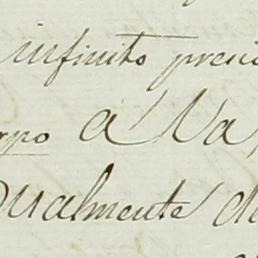 infinito preci
rpo a Va
ualmente de